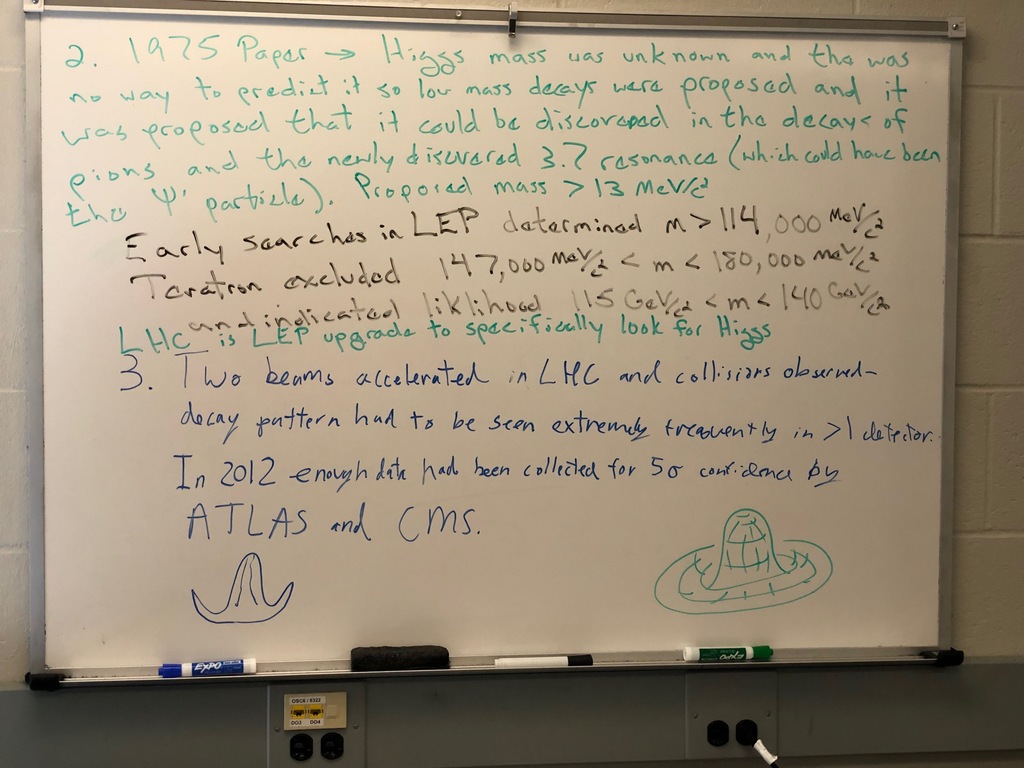 2. 1975 Paper → Higgs mass was unknown and tha was
no way to predict it so low mass decays were proposed and it
was proposed that it could be discovered in the decays of
pions and the newly discvered 3.7 resonance (which could have been
the ψ' particle). Proposed mass > 13 MeV/c²
Early searches in LEP determined m > 114,000 MeV/c²
Tevatron excluded 147,000 MeV/c² < m < 180,000 MeV/c²
and indicated liklihood 115 GeV/c² < m < 140 GeV/c²
LHC is LEP upgrade to specifically look for Higgs
3. Two beams accelerated in LHC and collisions observed-
decay pattern had to be seen extremely frequently in >1 detector.
In 2012 enough data had been collected for 5σ confidence by
ATLAS and CMS.
EXPO
EXPO
OSC6 / 6322
DO3 DO4